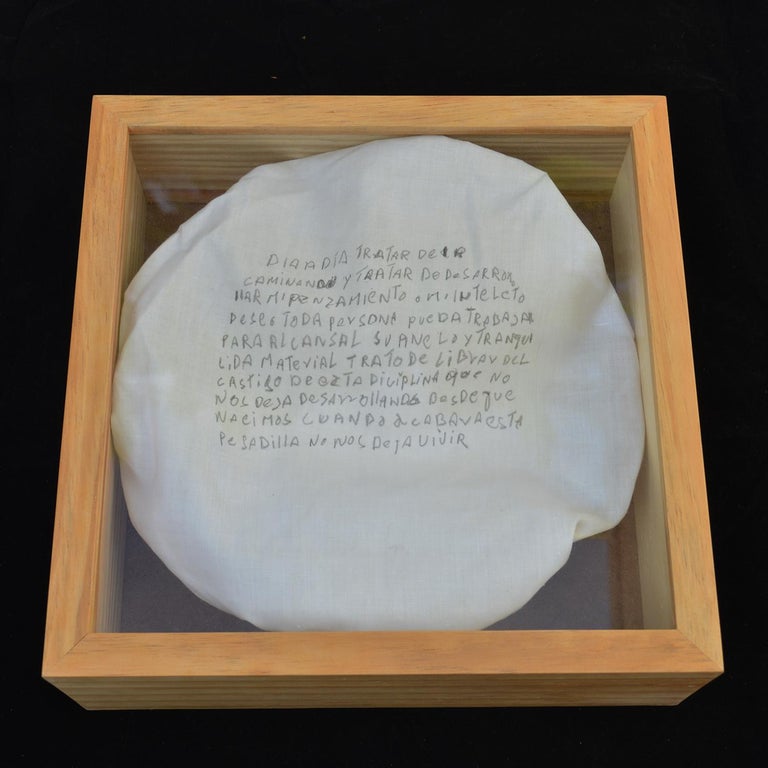 DIA A DÍA TRATAR DE IR
CAMINANDO Y TRATAR DE DESARRO
LLAR MI PENZAMIENTO O MI INTELETO
DESEO TODA PERSONA PUEDA TRABAJAR
PARA ALCANSAL SU ANELO Y TRANQUI
LIDA MATERIAL TRATO DE LIBRAR DEL
CASTIGO DE EZTA DICIPLINA QUE NO
NOS DEJA DESARROLLANDO DESDE QUE
NACIMOS CUANDO ACABARA ESTA
PESADILLA NO NOS DEJA VIVIR